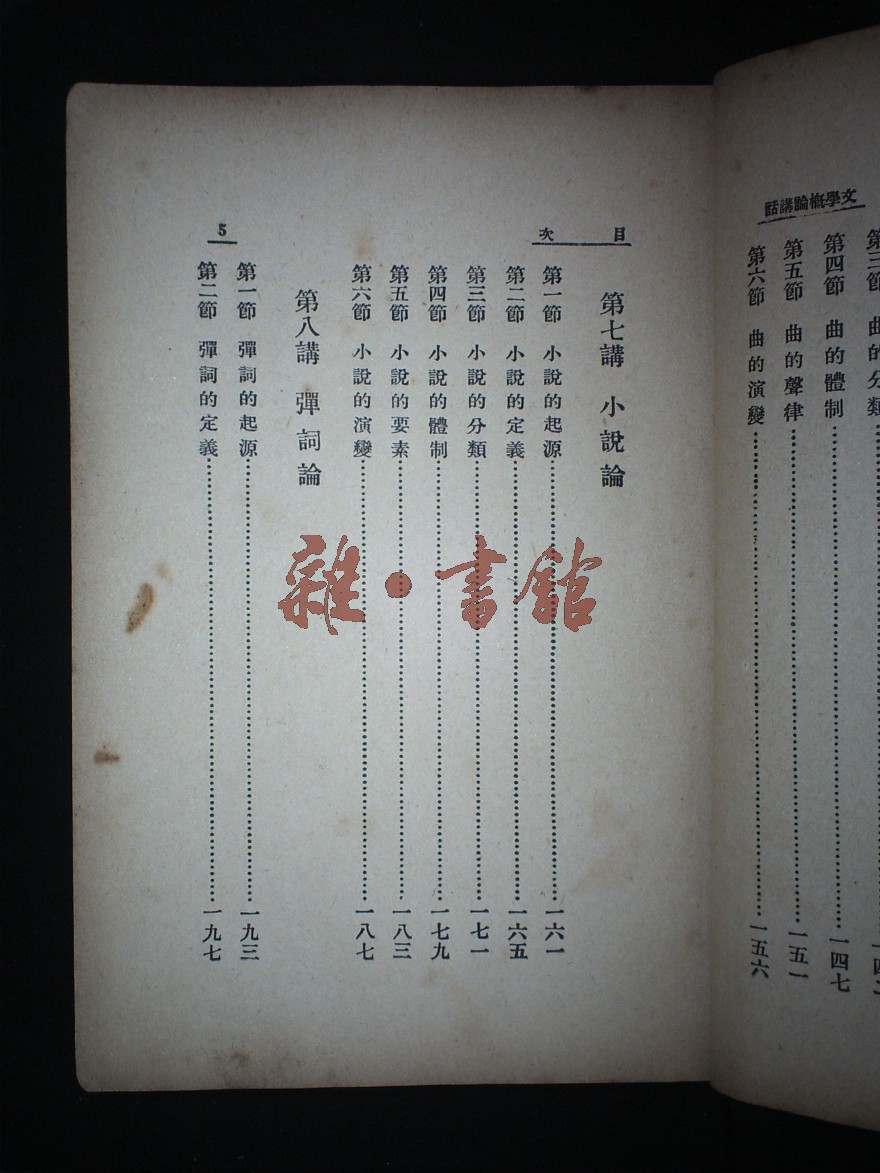 文學概論講話
第四節 曲的體制 一四七
第五節 曲的聲律 一五一
第六節 曲的演變 一五六
目次
5
第七講 小說論
第一節 小說的起源 一六一
第二節 小說的定義 一六五
第三節 小說的分類 一七一
第四節 小說的體制 一七九
第五節 小說的要素 一八三
第六節 小說的演變 一八七
第八講 彈詞論
第一節 彈詞的起源 一九三
第二節 彈詞的定義 一九七
雜·書館